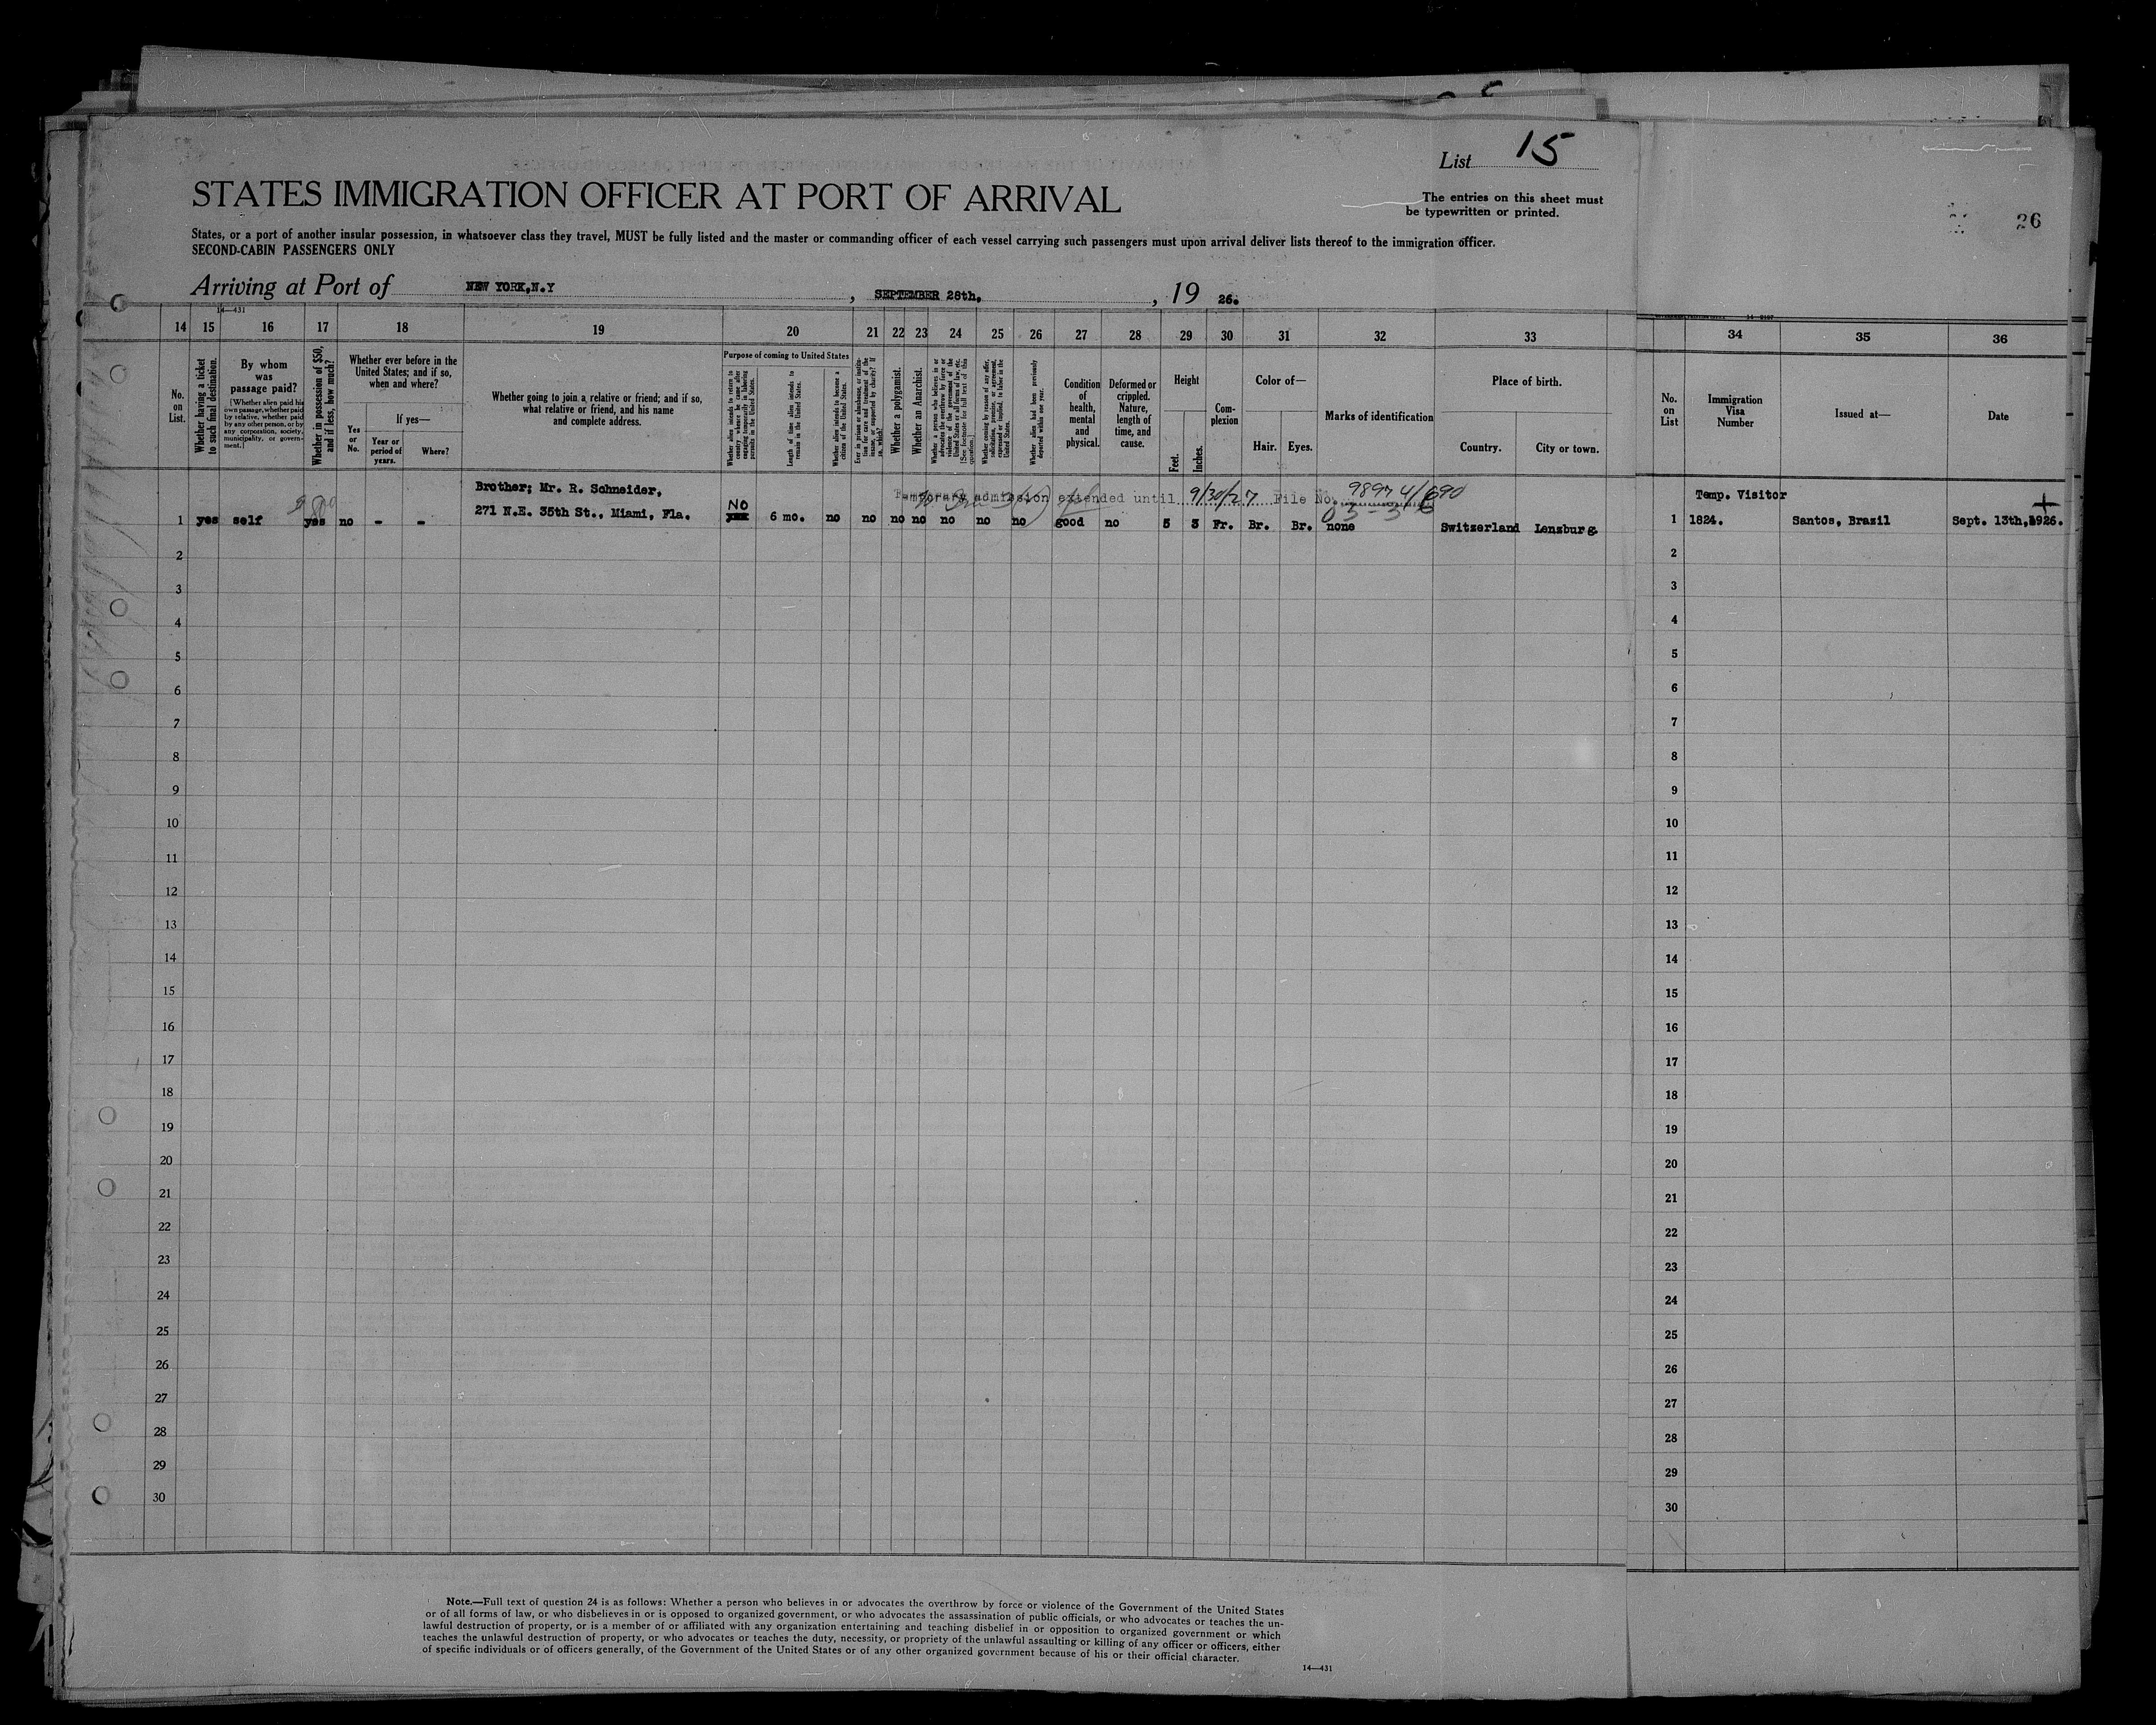 List 15
STATES IMMIGRATION OFFICER AT PORT OF ARRIVAL
The entries on this sheet must
be typewritten or printed.
26
States, or a port of another insular possession, in whatsoever class they travel, MUST be fully listed and the master or commanding officer of each vessel carrying such passengers must upon arrival deliver lists thereof to the immigration officer.
SECOND-CABIN PASSENGERS ONLY
Arriving at Port of NEW YORK,N.Y , SEPTEMBER 28th, , 19 26.
14—431
14 15 16 17 18 19 20 21 22 23 24 25 26 27 28 29 30 31 32 33 34 35 36
No. on List.
Whether having a ticket to such final destination.
By whom was passage paid?
[Whether alien paid his own passage, whether paid by relative, whether paid by any other person, or by any corporation, society, municipality, or government.]
Whether in possession of $50, and if less, how much?
Whether ever before in the United States; and if so, when and where?
Yes or No.
If yes—
Year or period of years.
Where?
Whether going to join a relative or friend; and if so, what relative or friend, and his name and complete address.
Purpose of coming to United States
Whether alien intends to return to country whence he came after engaging temporarily in laboring pursuits in the United States.
Length of time alien intends to remain in the United States.
Whether alien intends to become a citizen of the United States.
Ever in prison or almshouse, or institution for care and treatment of the insane, or supported by charity? If so, which?
Whether a polygamist.
Whether an Anarchist.
Whether a person who believes in or advocates the overthrow by force or violence of the Government of the United States or all forms of law, etc. [See footnote for full text of this question.]
Whether coming by reason of any offer, solicitation, promise, or agreement, expressed or implied, to labor in the United States.
Whether alien had been previously deported within one year.
Condition of health, mental and physical.
Deformed or crippled. Nature, length of time, and cause.
Height
Feet.
Inches.
Complexion
Color of—
Hair.
Eyes.
Marks of identification
Place of birth.
Country.
City or town.
No. on List
Immigration Visa Number
Issued at—
Date
Brother; Mr. R. Schneider,
Temporary admission extended until 9/30/27 File No. 98974/690
Temp. Visitor
1 yes self yes no - - 271 N.E. 35th St., Miami, Fla. NO 6 mo. no no no no no no no good no 5 3 Fr. Br. Br. none Switzerland Lenzburg 1 1824. Santos, Brazil Sept. 13th, 1926.
2 2
3 3
4 4
5 5
6 6
7 7
8 8
9 9
10 10
11 11
12 12
13 13
14 14
15 15
16 16
17 17
18 18
19 19
20 20
21 21
22 22
23 23
24 24
25 25
26 26
27 27
28 28
29 29
30 30
Note.—Full text of question 24 is as follows: Whether a person who believes in or advocates the overthrow by force or violence of the Government of the United States
or of all forms of law, or who disbelieves in or is opposed to organized government, or who advocates the assassination of public officials, or who advocates or teaches the un-
lawful destruction of property, or is a member of or affiliated with any organization entertaining and teaching disbelief in or opposition to organized government or which
teaches the unlawful destruction of property, or who advocates or teaches the duty, necessity, or propriety of the unlawful assaulting or killing of any officer or officers, either
of specific individuals or of officers generally, of the Government of the United States or of any other organized government because of his or their official character.
14—431